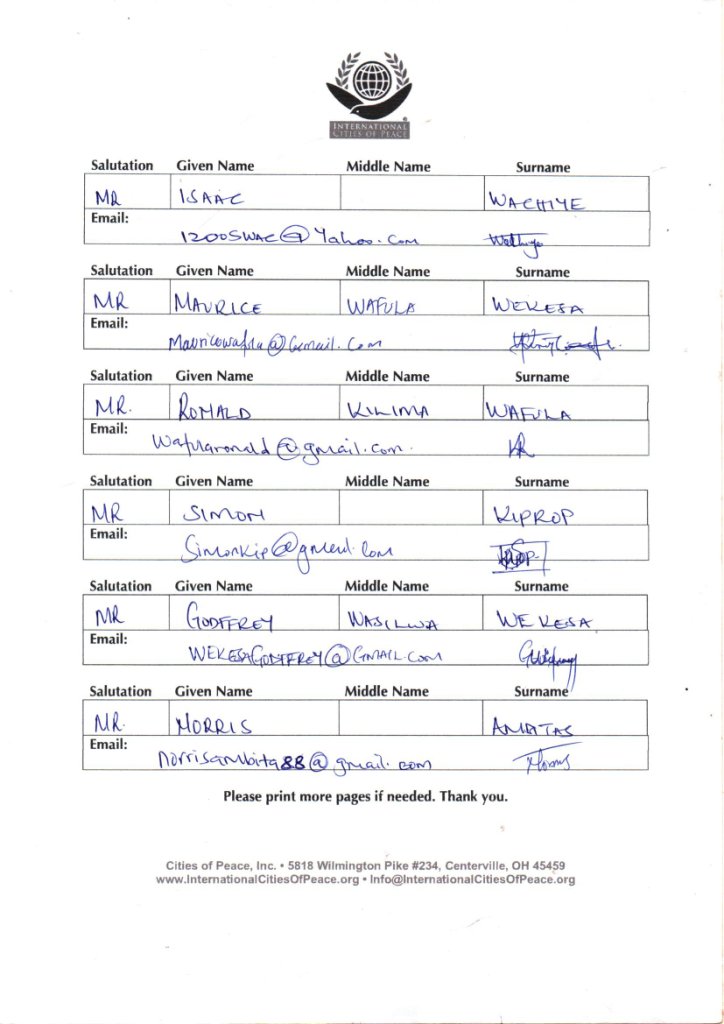 INTERNATIONAL
CITIES OF PEACE
Salutation Given Name Middle Name Surname
MR ISAAC WACHIYE
Email:
1200SWAC@Yahoo.Com
Salutation Given Name Middle Name Surname
MR MAURICE WAFULA WEKESA
Email:
Mauricewafula@Gmail.Com
Salutation Given Name Middle Name Surname
MR. RONALD KILIMA WAFULA
Email:
Wafularonald@gmail.com.
Salutation Given Name Middle Name Surname
MR SIMON KIPROP
Email:
Simonkip@gmail.com
Salutation Given Name Middle Name Surname
MR GODFFREY WASILWA WEKESA
Email:
WEKESAGODFFREY@GMAIL.COM
Salutation Given Name Middle Name Surname
MR. MORRIS AMBITAS
Email:
morrisambita88@gmail.com
Please print more pages if needed. Thank you.
Cities of Peace, Inc. • 5818 Wilmington Pike #234, Centerville, OH 45459
www.InternationalCitiesOfPeace.org • Info@InternationalCitiesOfPeace.org